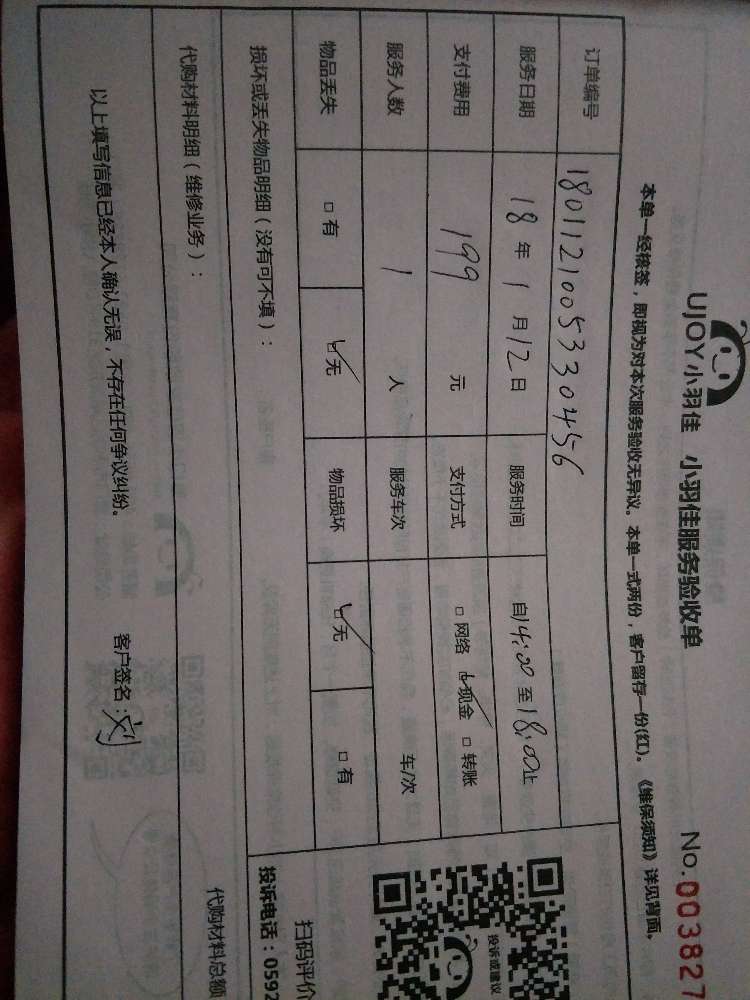 UJOY小羽佳 小羽佳服务验收单 No.003827
本单一经核签，即视为对本次服务验收无异议。本单一式两份，客户留存一份(红)。《维保须知》详见背面。
订单编号 180112100533330456
服务日期 18年1月12日 服务时间 自14:00至18:00止
支付费用 199 元 支付方式 □网络 ☑现金 □转账
服务人数 1 人 服务车次 车/次
物品丢失 □有 ☑无 物品损坏 ☑无 □有
损坏或丢失物品明细（没有可不填）：
代购材料明细（维修业务）：
代购材料总额
以上填写信息已经本人确认无误，不存在任何争议纠纷。 客户签名:刘
投诉或建议
扫码评价
投诉电话：0592